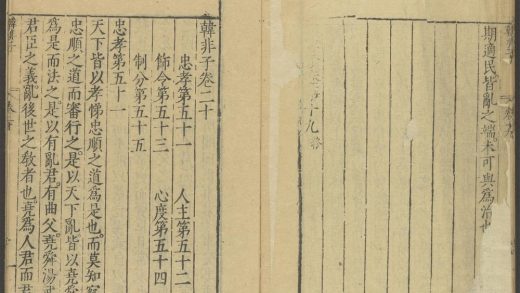 期適民皆亂之端未可與為治也
十九
韓非子卷二十
忠孝第五十一　人主第五十二
飭令第五十三　心度第五十四
制分第五十五
忠孝第五十一
天下皆以孝悌忠順之道爲是也而莫知察
忠順之道而審行之是以天下亂皆以堯
爲是而法之是以有亂君有曲父堯舜湯
君臣之義亂後世之教者也堯爲人君而君
韓非子